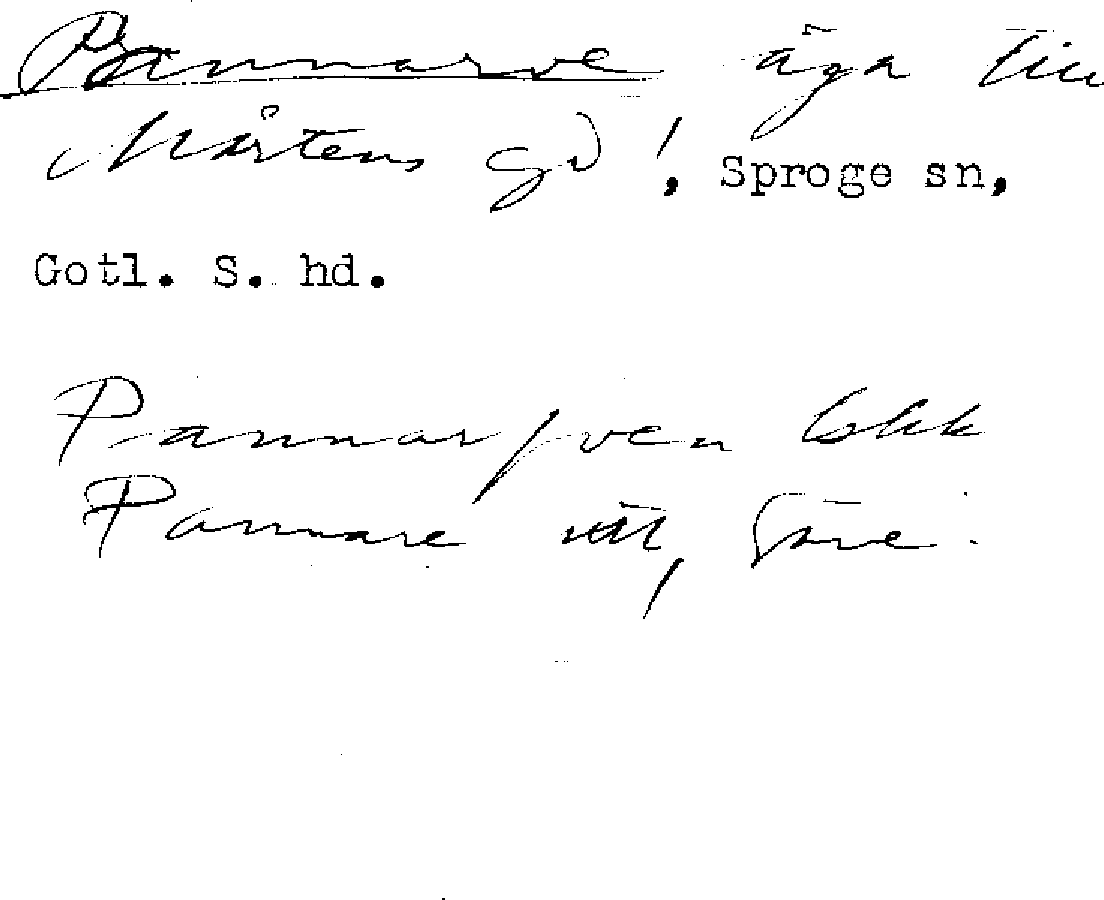 Pannarve äga till
Mårtens gd!, Sproge sn,
Gotl. S. hd.
Pannar/ven
Pannare